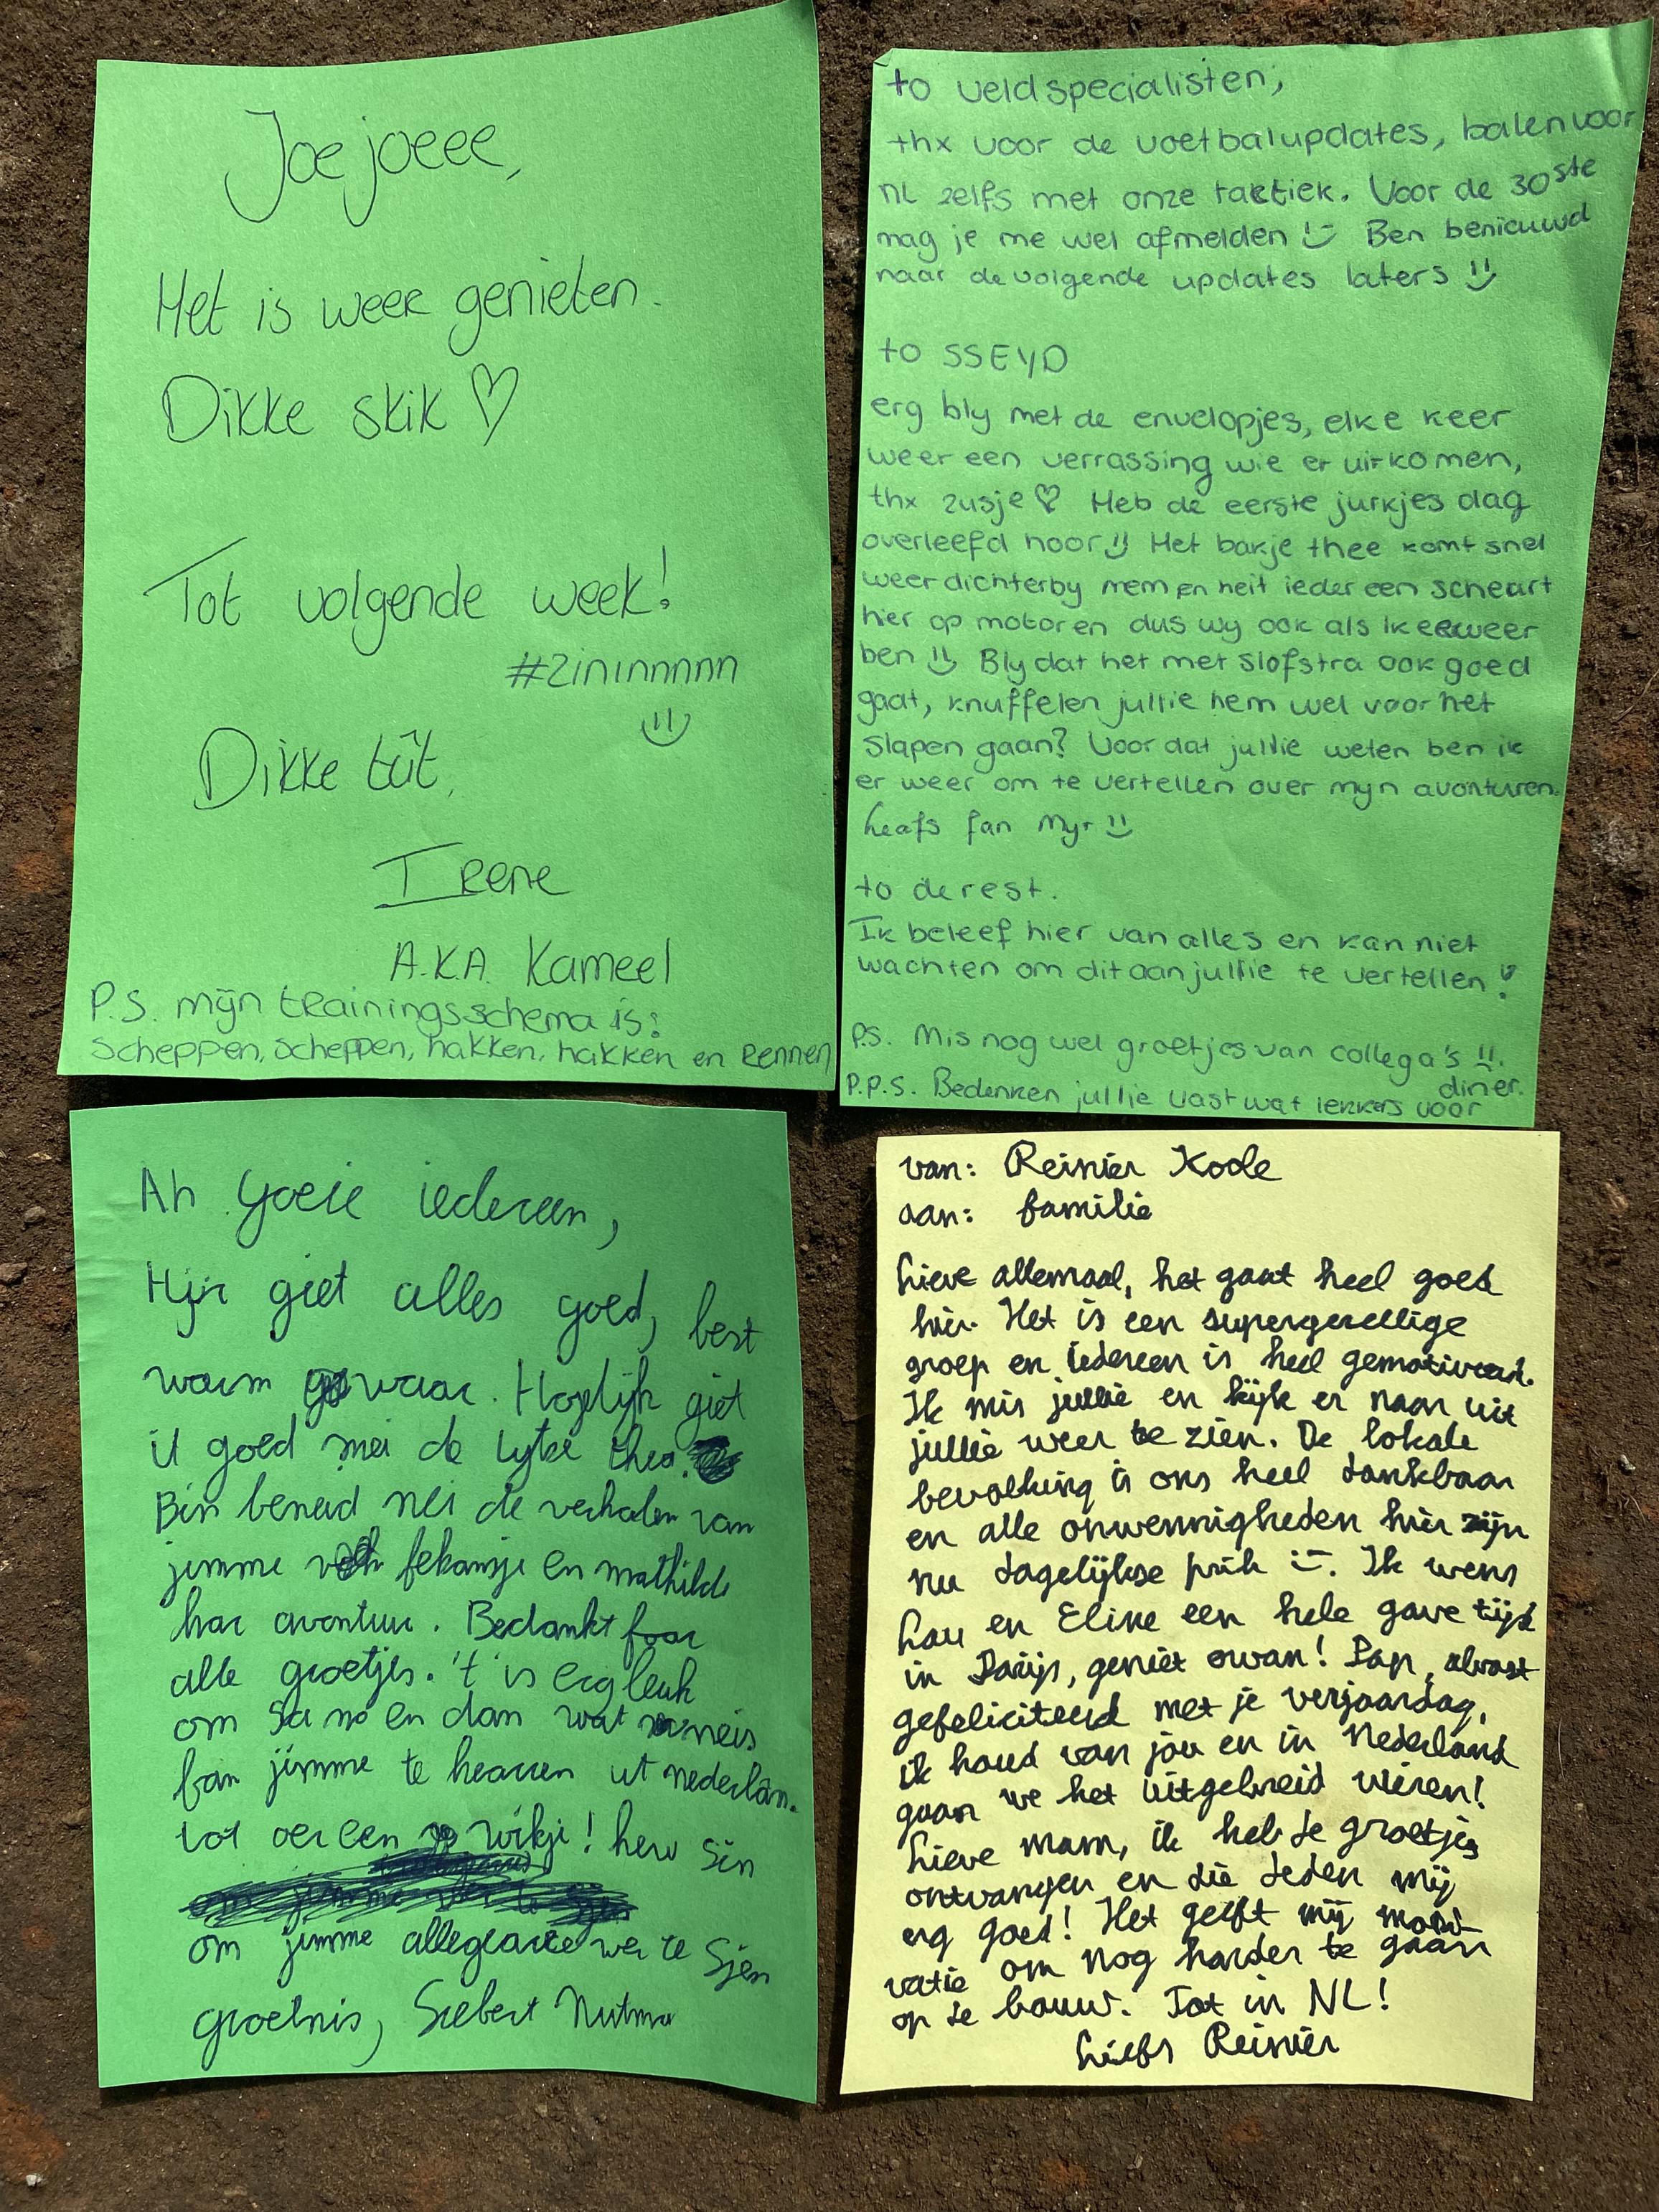 Joejoeee,
Het is weer genieten.
Dikke skik ♡
Tot volgende week!
#zinininnnnn
Dikke tût,
Irene
A.K.A. Kameel
P.S. mijn trainingsschema is:
scheppen, scheppen, hakken, hakken en rennen
to veldspecialisten,
thx voor de voetbalupdates, balen voor
nl zelfs met onze tactiek. Voor de 30ste
mag je me wel afmelden Ben benieuwd
naar de volgende updates laters
to SSEYD
erg bly met de envelopjes, elke keer
weer een verrassing wie er uitkomen,
thx zusje ♡ Heb de eerste jurkjes dag
overleefd hoor Het bakje thee komt snel
weer dichterby mem en heit iedereen scheurt
hier op motoren dus wy ook als ik weer
ben Bly dat het met Slofstra ook goed
gaat, knuffelen jullie hem wel voor het
slapen gaan? Voor dat jullie weten ben ik
er weer om te vertellen over myn avonturen.
Leafs fan Myr
to de rest.
Ik beleef hier van alles en kan niet
wachten om dit aan jullie te vertellen!
P.S. Mis nog wel groetjes van collega's
P.P.S. Bedenken jullie vast wat lekkers voor
diner.
Ah Goeie iedereen,
Hjir giet alles goed, best
warm waar. Hopelijk giet
it goed mei de lytse thea.
Bin beneid nei de verhalen van
jimme fekansje en mathilde
har avontuur. Bedankt foar
alle groetjes. 't is erg leuk
om sa no en dan wat neis
fan jimme te hearren ut nederlân.
tot oer een wikje! hew sin
om jimme allegearre wer te sjen
groetnis, Siebert Nutma
van: Reinier Kode
aan: familie
Lieve allemaal, het gaat heel goed
hier. Het is een supergezellige
groep en iedereen is heel gemotiveerd.
Ik mis jullie en kijk er naar uit
jullie weer te zien. De lokale
bevolking is ons heel dankbaar
en alle onwennigheden hier zijn
nu dagelijkse prik :-). Ik wens
Lau en Eline een hele gave tijd
in Parijs, geniet ervan! Pap, alvast
gefeliciteerd met je verjaardag,
ik houd van jou en in Nederland
gaan we het uitgebreid vieren!
Lieve mam, ik heb de groetjes
ontvangen en die deden mij
erg goed! Het geeft mij moti-
vatie om nog harder te gaan
op de bouw. Tot in NL!
Liefs Reinier